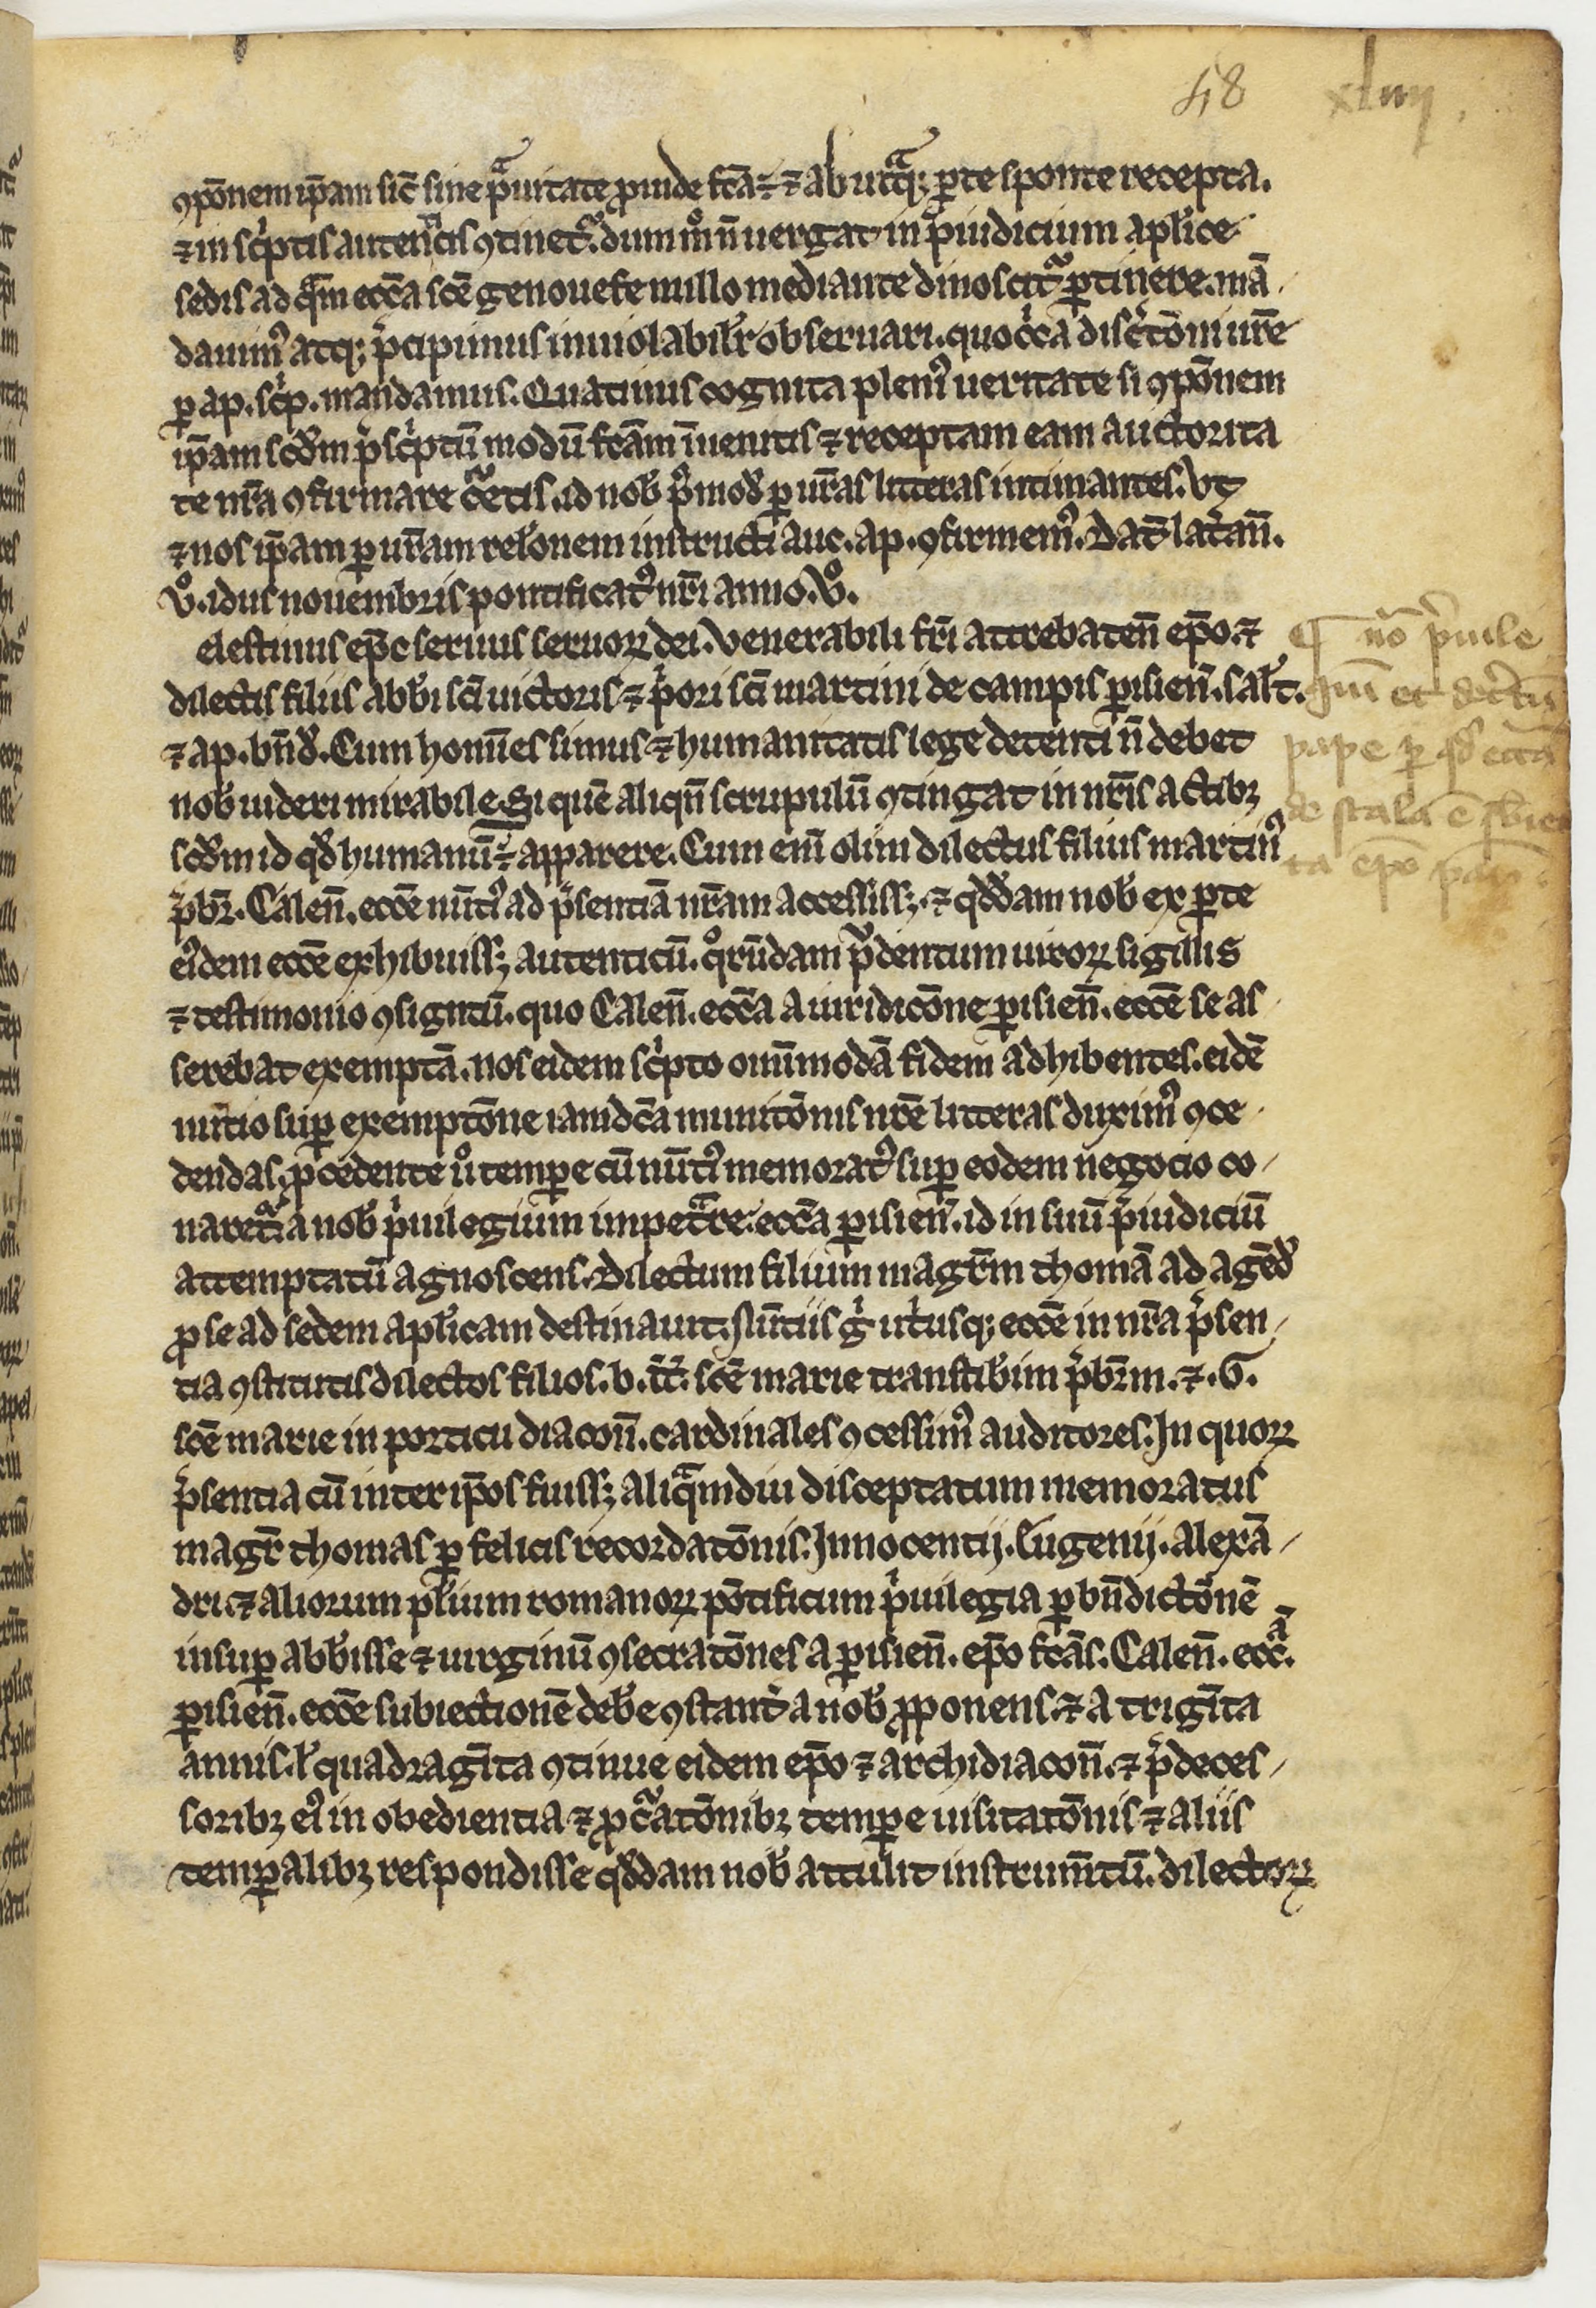 48 xliiij.
ꝯpōnem ip̄am sic̄ sine p̃uitate ꝓuide fc̄a ÷ ⁊ ab utͣqꝫ ꝑte sponte recepta.
⁊ in scͥptis autenticis ꝯtinet᷑. dum mͦ n̄ uergat in p̃iudicium aplice
sedis ad qͣm ecc̄a sc̄e genouefe nullo mediante dinoscit᷑ ꝑtinere. mā
dauimꝰ atqꝫ p̃cipimus inuiolabilr̄ obseruari. quocͥca discͥtōni ur̄e
ꝑ ap. scͥp. mandamus. Quatinus cognita plenꝰ ueritate si ꝯpōnem
ip̄am scd̄m p̃scͥptū modū fc̄am īueneritis ⁊ receptam eam auctorita
te nr̄a ꝯfirmare cͣetis. id nob̄ pꝰmod̄ ꝑ ur̄as litteras intimantes. Vt
⁊ nos ip̄am ꝑ ur̄am rel̄onem instructi auc. ap. ꝯfirmemꝰ. Dat̄ lat̓an̄.
vͦ. idus nouembris pontificatꝰ nr̄i anno. vͦ.
elestinus ep̄c seruus seruoꝝ dei. Venerabili fr̄i attrebaten̄ ep̄o. ⁊
dilectis filiis abb̄i sc̄i uictoris ⁊ p̃ori sc̄i martini de campis ꝑisien̄. salt̄.
⁊ ap. bn̄d̄. Cum homīes simus ⁊ humanitatis lege detenti n̄ debet
nob̄ uideri mirabile Si quē aliqn̄ scrupulū ꝯtingat in nr̄is actibꝫ
scd̄m id qd̄ humanū ÷ apparere. Cum enī olim dilectus filius martinꝰ
p̃br̄. Calen̄. ecc̄e nūtiꝰ ad p̃sentiā nr̄am accessissꝫ. ⁊ qd̄dam nob̄ ex ꝑte
eiꝰdem ecc̄e exhibuissꝫ autenticū. qͦrūdam p̃dentum uiroꝝ sigillis
⁊ testimonio ꝯsignatū. quo Calen̄. ecc̄a a iuridicōne ꝑisien̄. ecc̄e se as
serebat exemptā. nos eidem scͥpto omīmodā fidem adhibentes. eidē
nuntio suꝑ exemptōne iamdc̄a munitōnis nr̄e litteras duximꝰ ꝯce
dendas. p̃cedente uͦ temꝑe cū nūtiꝰ memoratꝰ suꝑ eodem negocio co
naret᷑ a nob̄ p̃uilegium impetͣre. ecc̄a ꝑisien̄. id in suū p̃iudiciū
attemptatū agnoscens. Dilectum filium magr̄m thomā ad agēd̄
ꝓ se ad sedem aplicam destinauit. Nūtiis gͥ utͥusqꝫ ecc̄e in nr̄a p̃sen
tia ꝯstitutis dilectos filios. b. tt̄. sc̄e marie transtib̄im p̃br̄m. ⁊ . G.
sc̄e marie in porticu diacon̄. cardinales ꝯcessimꝰ auditores. In quoꝝ
p̃sentia cū inter ip̄os fuissꝫ aliqͣmdiu disceptatum memoratus
magr̄ thomas ꝑ felicis recordatōnis. Innocentij. Eugenij. Alexā
dri. ⁊ aliorum pl̄ium romanoꝝ pōtificum p̃uilegia ꝑ bn̄dictōnē
insuꝑ abb̄isse ⁊ uirginū ꝯsecratōnes a ꝑisien̄. ep̄o fc̄as. Calen̄. ecc̄ā.
ꝑisien̄. ecc̄e subiectionē deb̄e ꝯstant̓ a nob̄ ꝓponens. ⁊ a trigīta
annis. ł quadragīta ꝯtinue eidem ep̄o ⁊ archidiacon̄. ⁊ p̃deces
soribꝫ eiꝰ in obedientia ⁊ ꝓcͣatōnibꝫ temꝑe uisitatōnis ⁊ aliis
temꝑalibꝫ respondisse qd̄dam nob̄ attulit instrumēt̄ū. dilectoꝝ
¶ nōͣ p̃uile
giū et decͥtū
pape ꝑ qd̄ ecc̄a
de scala ē sb̄iec
ta ep̄o par̄.